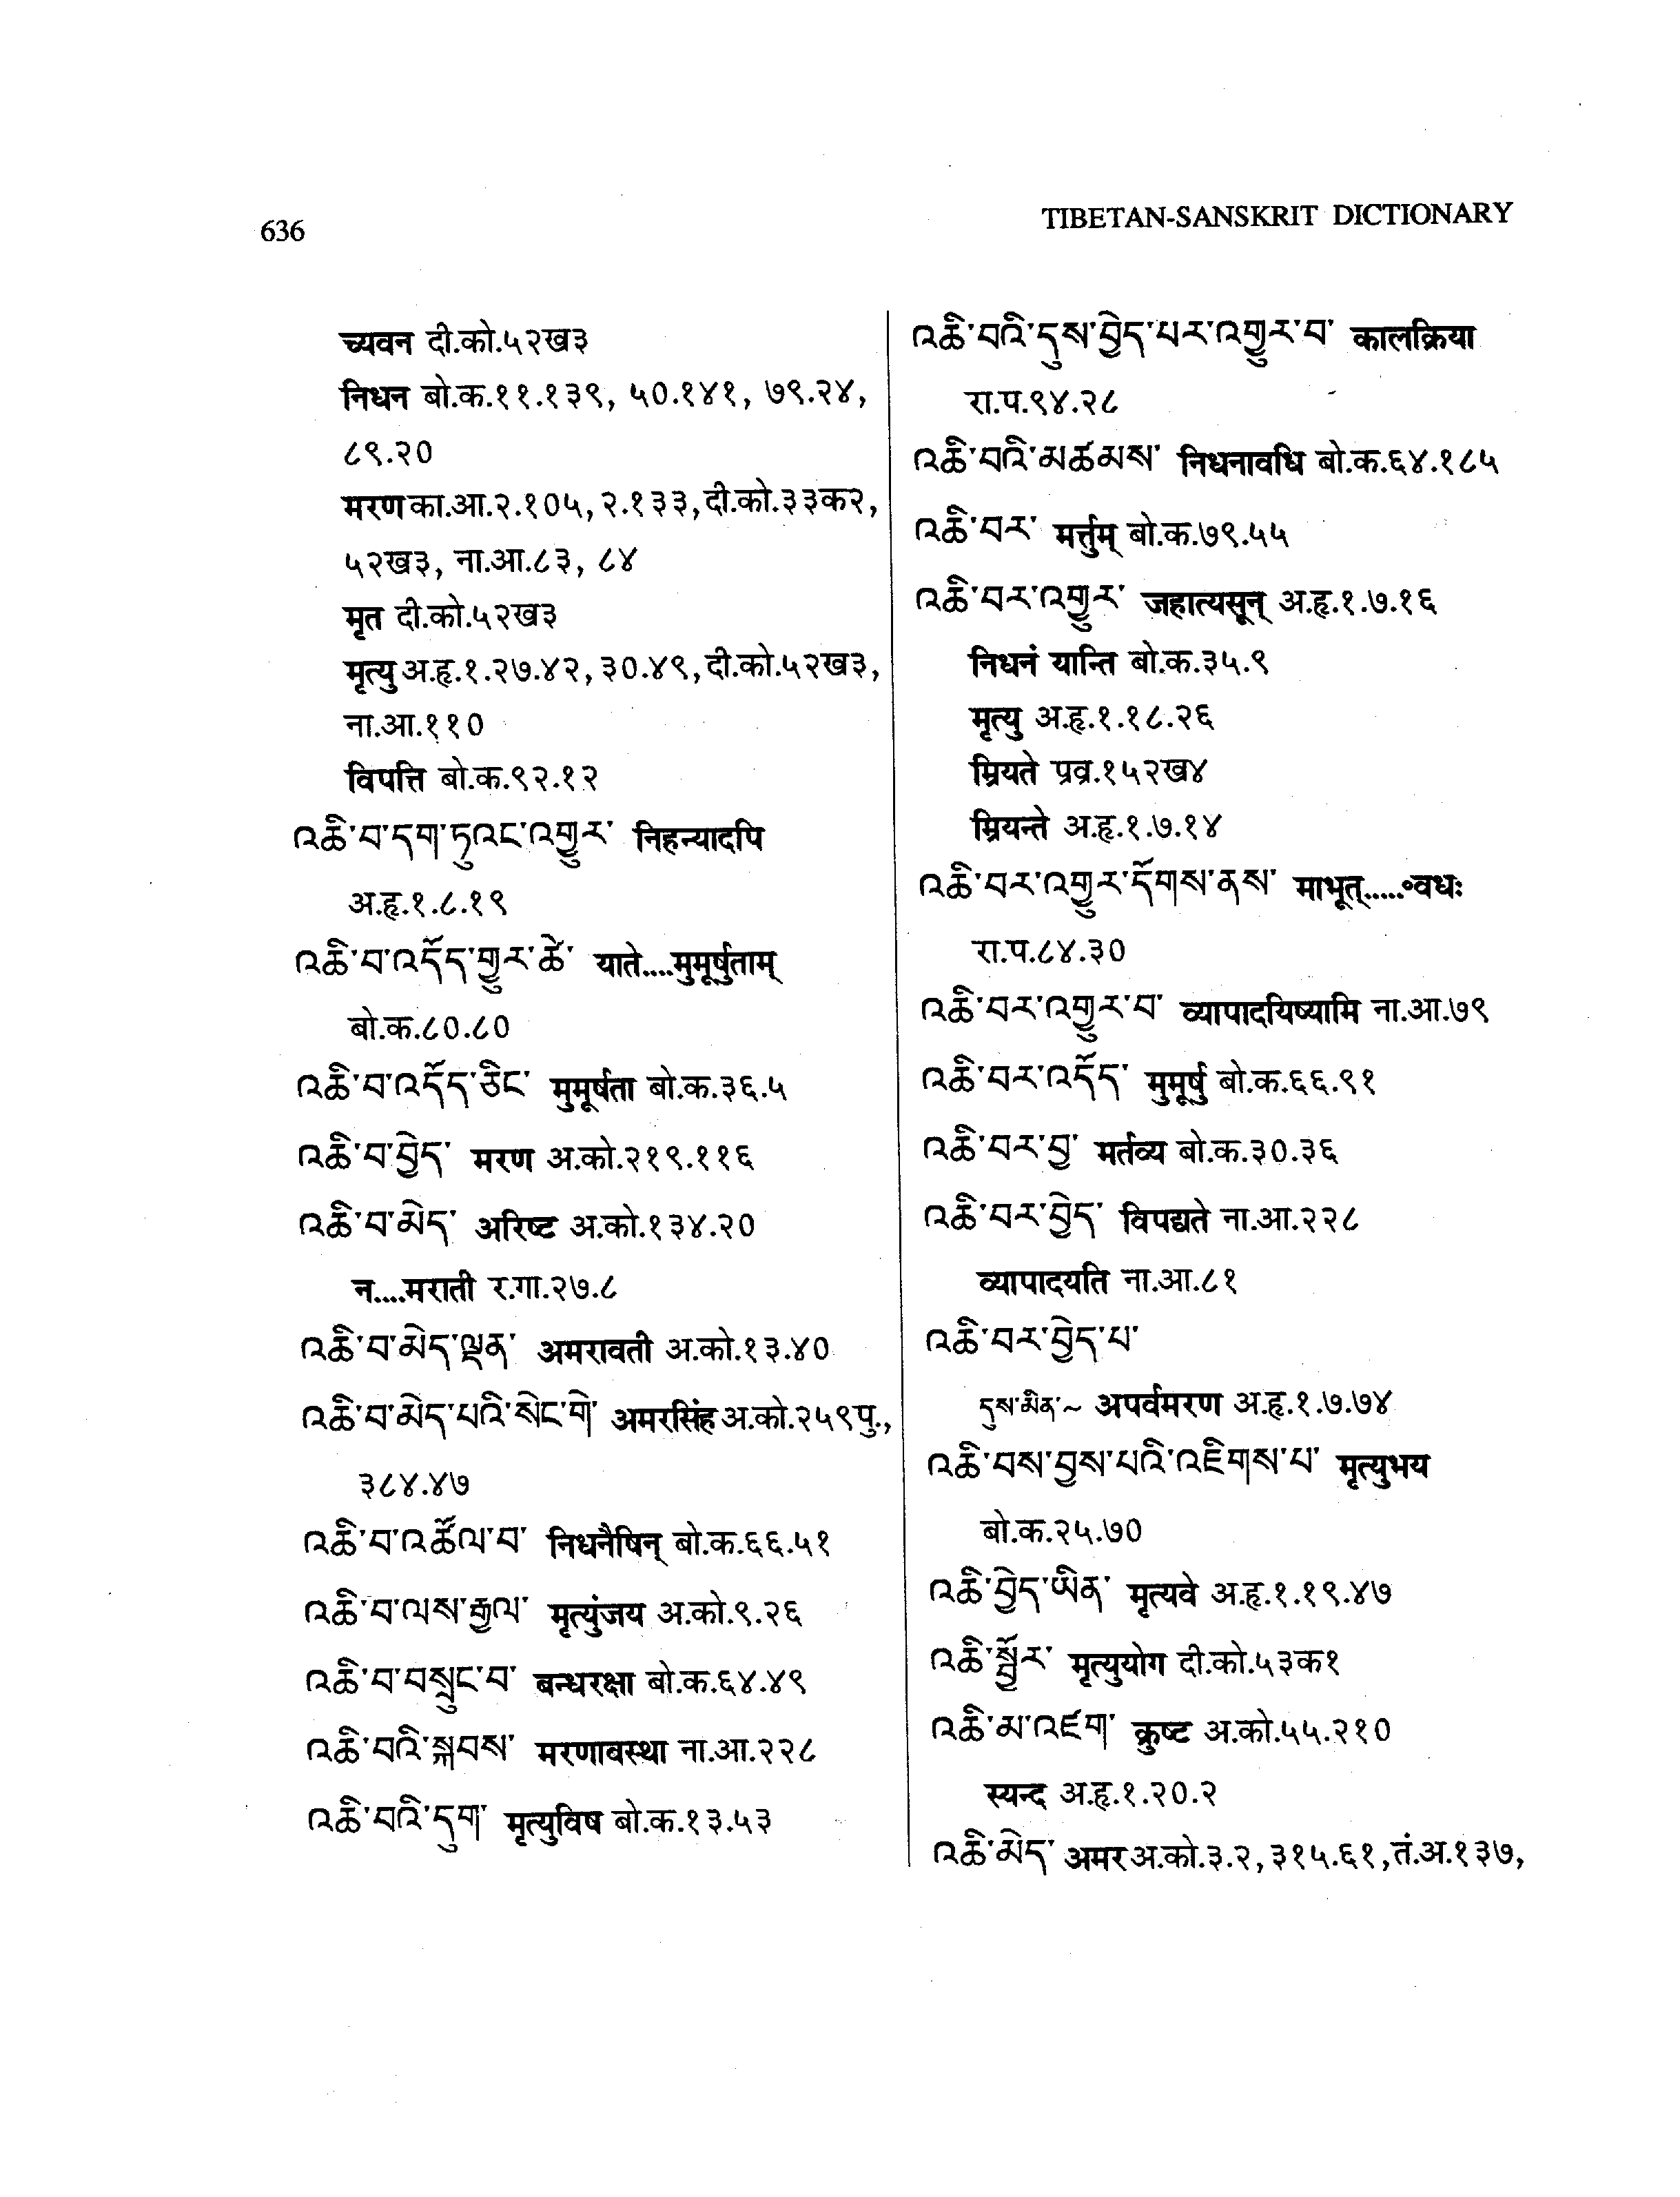 636
TIBETAN-SANSKRIT DICTIONARY
च्यवन दी.को.५२ख३
निधन बो.क.११.१३९, ५०.१४१, ७९.२४,
८९.२०
मरण का.आ.२.१०५, २.१३३, दी.को.३३क२,
५२ख३, ना.आ.८३, ८४
मृत दी.को.५२ख३
मृत्यु अ.हृ.१.२७.४२, ३०.४९, दी.को.५२ख३,
ना.आ.११०
विपत्ति बो.क.९२.१२
འཆི་བ་དག་ཏུའང་འགྱུར་ निहन्यादपि
अ.हृ.१.८.१९
འཆི་བ་འདོད་གྱུར་ཚེ་ याते....मुमूर्षुताम्
बो.क.८०.८०
འཆི་བ་འདོད་ཅིང་ मुमूर्षता बो.क.३६.५
འཆི་བ་བྱེད་ मरण अ.को.२१९.११६
འཆི་བ་མེད་ अरिष्ट अ.को.१३४.२०
न....मराती र.गा.२७.८
འཆི་བ་མེད་ལྡན་ अमरावती अ.को.१३.४०
འཆི་བ་མེད་པའི་སེང་གེ་ अमरसिंह अ.को.२५९पु.,
३८४.४७
འཆི་བ་འཚོལ་བ་ निधनैषिन् बो.क.६६.५१
འཆི་བ་ལས་རྒྱལ་ मृत्युंजय अ.को.९.२६
འཆི་བ་བསྲུང་བ་ बन्धरक्षा बो.क.६४.४९
འཆི་བའི་སྐབས་ मरणावस्था ना.आ.२२८
འཆི་བའི་དུག་ मृत्युविष बो.क.१३.५३
འཆི་བའི་དུས་བྱེད་པར་འགྱུར་བ་ कालक्रिया
रा.प.९४.२८
འཆི་བའི་མཚམས་ निधनावधि बो.क.६४.१८५
འཆི་བར་ मर्त्तुम् बो.क.७९.५५
འཆི་བར་འགྱུར་ जहात्यसून् अ.हृ.१.७.१६
निधनं यान्ति बो.क.३५.९
मृत्यु अ.हृ.१.१८.२६
म्रियते प्रव्र.१५२ख४
म्रियन्ते अ.हृ.१.७.१४
འཆི་བར་འགྱུར་དོགས་ནས་ माभूत्.....॰वधः
रा.प.८४.३०
འཆི་བར་འགྱུར་བ་ व्यापादयिष्यामि ना.आ.७९
འཆི་བར་འདོད་ मुमूर्षु बो.क.६६.९१
འཆི་བར་བྱ་ मर्तव्य बो.क.३०.३६
འཆི་བར་བྱེད་ विपद्यते ना.आ.२२८
व्यापादयति ना.आ.८१
འཆི་བར་བྱེད་པ་
དུས་མིན་~ अपर्वमरण अ.हृ.१.७.७४
འཆི་བས་བྱས་པའི་འཇིགས་པ་ मृत्युभय
बो.क.२५.७०
འཆི་བྱེད་ཡིན་ मृत्यवे अ.हृ.१.१९.४७
འཆི་སྦྱོར་ मृत्युयोग दी.को.५३क१
འཆི་མ་འཛག་ क्रुष्ट अ.को.५५.२१०
स्यन्द अ.हृ.१.२०.२
འཆི་མེད་ अमर अ.को.३.२, ३१५.६१, तं.अ.१३७,